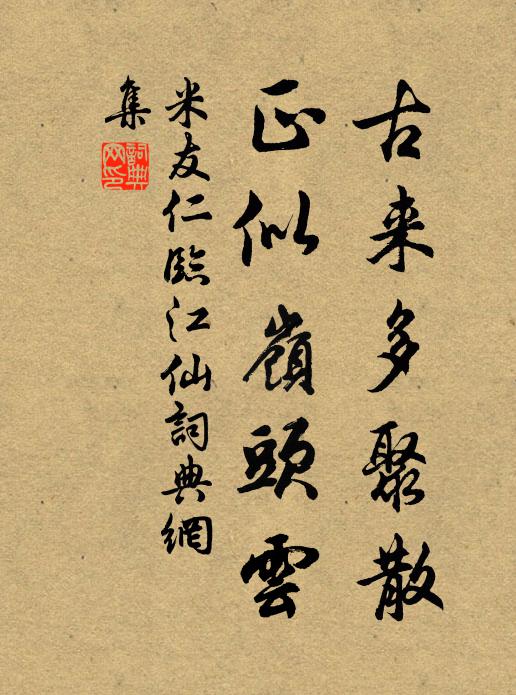 古来多聚散
正似嶺頭雲
米友仁臨江仙詞典網
集
詞典
网印